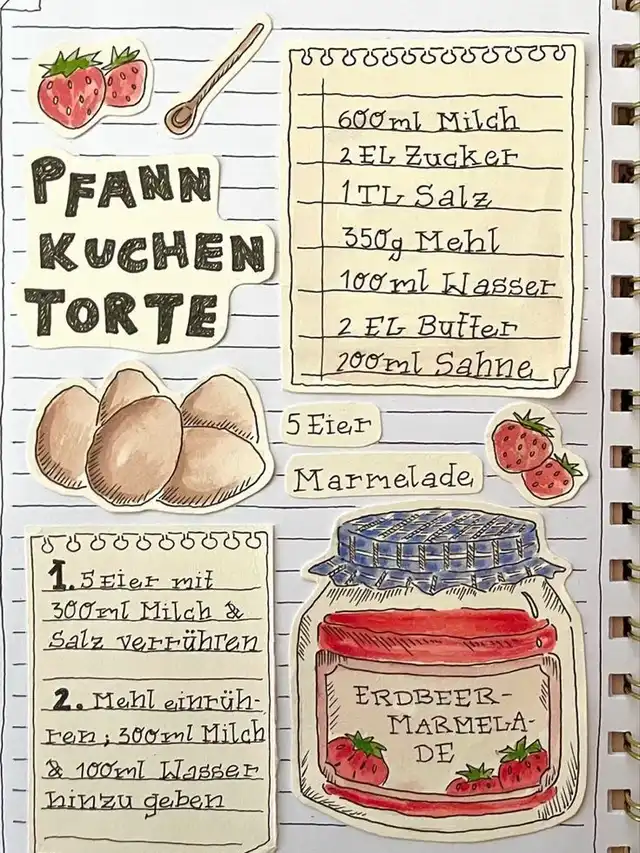 PFANN
KUCHEN
TORTE
600ml Milch
2 EL Zucker
1 TL Salz
350g Mehl
100ml Wasser
2 EL Butter
200ml Sahne
5 Eier
Marmelade
1. 5 Eier mit
300ml Milch &
Salz verrühren
2. Mehl einrüh-
ren; 300ml Milch
& 100ml Wasser
hinzu geben
ERDBEER-
MARMELA-
DE